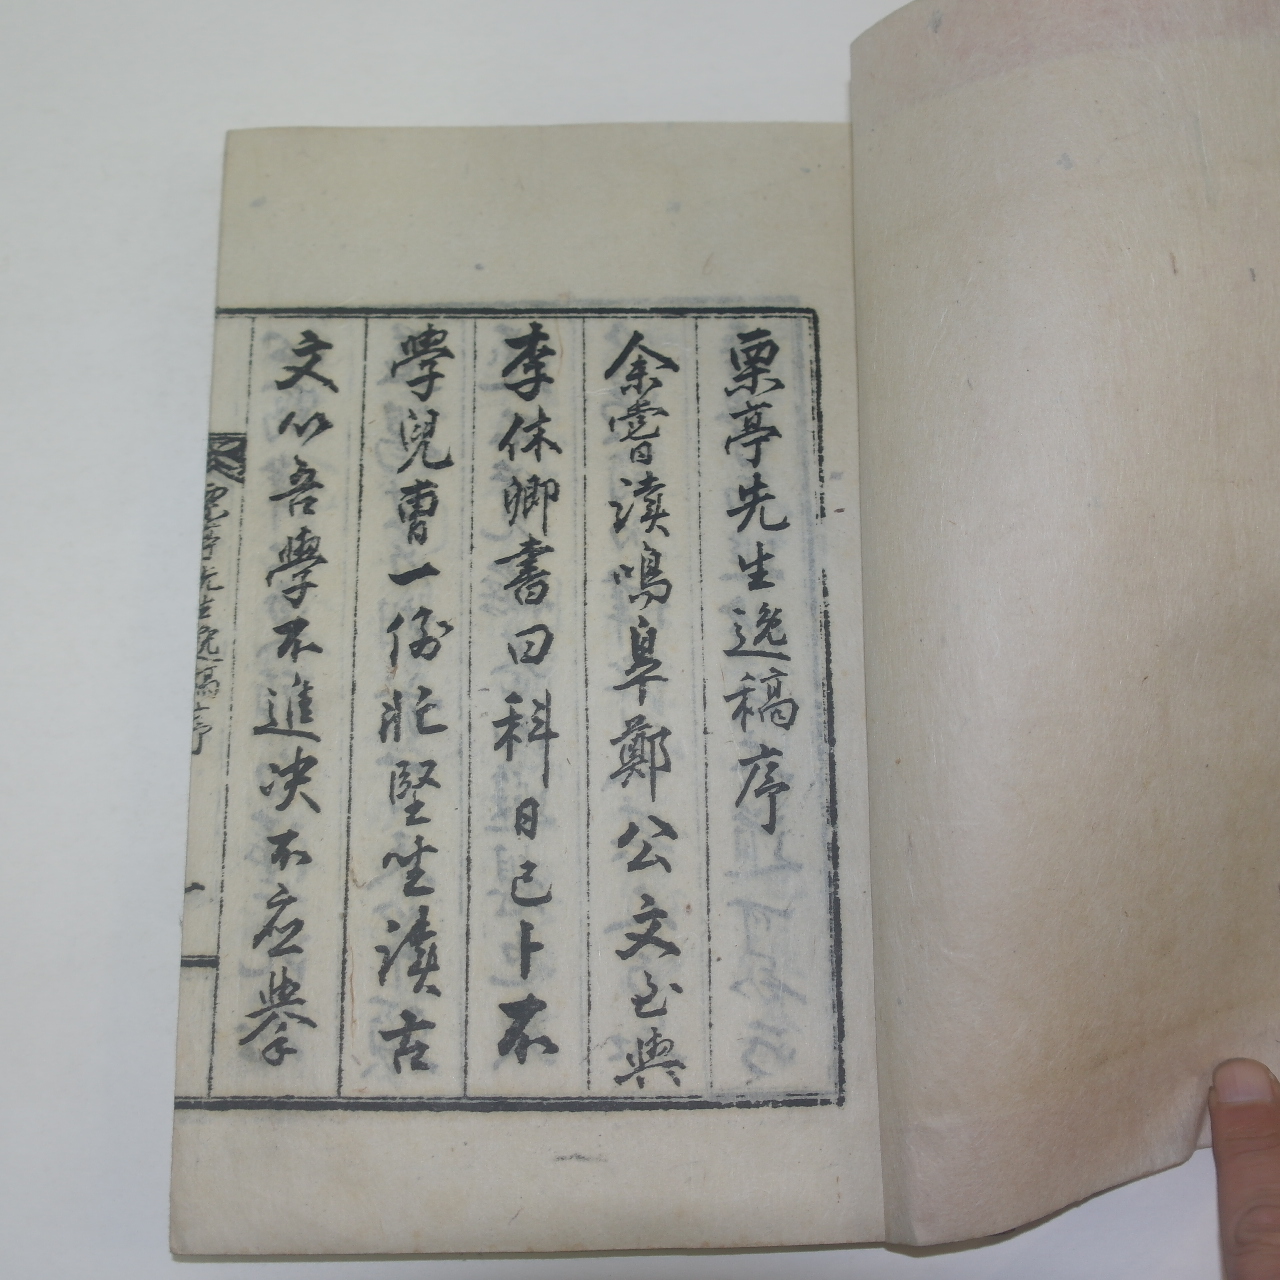 栗亭先生逸稿序
余嘗讀鳴皐鄭公文至與
李休卿書曰科日已卜不
學兒曹一倣忙堅坐讀古
文以吾學不進决不應擧
栗亭先生逸稿序 一